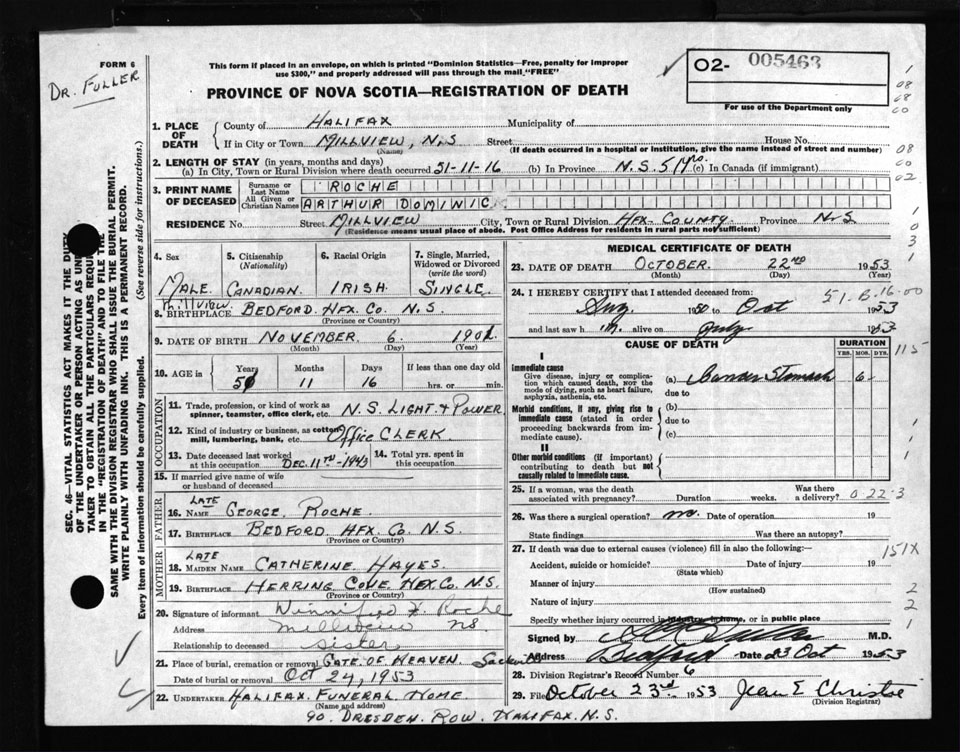 FORM 6
DR. FULLER
This form if placed in an envelope, on which is printed "Dominion Statistics—Free, penalty for improper
use $300," and properly addressed will pass through the mail "FREE"
PROVINCE OF NOVA SCOTIA—REGISTRATION OF DEATH
O2- 005463
For use of the Department only
SEC. 46—VITAL STATISTICS ACT MAKES IT THE DUTY
OF THE UNDERTAKER OR PERSON ACTING AS UND
TAKER TO OBTAIN ALL THE PARTICULARS REQUI
IN THE "REGISTRATION OF DEATH" AND TO FILE THE
SAME WITH THE DIVISION REGISTRAR WHO SHALL ISSUE THE BURIAL PERMIT.
WRITE PLAINLY WITH UNFADING INK. THIS IS A PERMANENT RECORD.
Every item of information should be carefully supplied. (See reverse side for instructions.)
1. PLACE OF DEATH County of HALIFAX Municipality of
If in City or Town MILLVIEW, N.S Street House No.
(Name) (If death occurred in a hospital or institution, give the name instead of street and number)
2. LENGTH OF STAY (in years, months and days)
(a) In City, Town or Rural Division where death occurred 51-11-16 (b) In Province N.S. (c) In Canada (if immigrant)
3. PRINT NAME OF DECEASED
Surname or Last Name ROCHE
All Given or Christian Names ARTHUR DOMINIC
RESIDENCE No. Street MILLVIEW City, Town or Rural Division HFX- COUNTY Province N.S
(Residence means usual place of abode. Post Office Address for residents in rural parts not sufficient)
4. Sex MALE
5. Citizenship (Nationality) CANADIAN
6. Racial Origin IRISH
7. Single, Married, Widowed or Divorced (write the word) SINGLE
Millview
8. BIRTHPLACE BEDFORD HFX Co. N.S.
(Province or Country)
9. DATE OF BIRTH NOVEMBER 6 1901
(Month) (Day) (Year)
10. AGE in Years 51 Months 11 Days 16 If less than one day old hrs. or min.
OCCUPATION
11. Trade, profession, or kind of work as spinner, teamster, office clerk, etc. N.S. LIGHT & POWER
12. Kind of industry or business, as cotton mill, lumbering, bank, etc. OFFICE CLERK
13. Date deceased last worked at this occupation DEC. 11TH-1943
14. Total yrs. spent in this occupation
15. If married give name of wife or husband of deceased
FATHER
LATE
16. NAME GEORGE ROCHE
17. BIRTHPLACE BEDFORD HFX. CO. N.S.
(Province or Country)
MOTHER
LATE
18. MAIDEN NAME CATHERINE HAYES
19. BIRTHPLACE HERRING COVE HFX. CO. N.S.
(Province or Country)
20. Signature of informant Winnifred Roche
Address Millview NS.
Relationship to deceased sister
21. Place of burial, cremation or removal GATE OF HEAVEN Sackville
Date of burial or removal Oct 24, 1953
22. UNDERTAKER HALIFAX FUNERAL HOME
(Name and address)
90. DRESDEN ROW. HALIFAX. N.S.
MEDICAL CERTIFICATE OF DEATH
23. DATE OF DEATH OCTOBER 22ND 1953
(Month) (Day) (Year)
24. I HEREBY CERTIFY that I attended deceased from
1950 to Oct 1953
and last saw h m alive on July 1953
CAUSE OF DEATH
DURATION
YRS. MOS. DYS.
I
Immediate cause
Give disease, injury or complication which caused death, NOT the mode of dying, such as heart failure, asphyxia, asthenia, etc.
(a) Cancer Stomach 6 -
due to
Morbid conditions, if any, giving rise to immediate cause (stated in order proceeding backwards from immediate cause).
(b)
due to
(c)
II
Other morbid conditions (if important) contributing to death but not causally related to immediate cause.
25. If a woman, was the death associated with pregnancy? Duration weeks. Was there a delivery?
26. Was there a surgical operation? no. Date of operation 19
State findings Was there an autopsy?
27. If death was due to external causes (violence) fill in also the following:—
Accident, suicide or homicide? Date of injury 19
(State which)
Manner of injury
(How sustained)
Nature of injury
Specify whether injury occurred in industry in home, or in public place
Signed by M.D.
Address Bedford Date 23 Oct 1953
28. Division Registrar's Record Number 6
29. Filed October 23rd 1953 Jean E Christie
(Division Registrar)
1
08
68
60
08
60
02
1
0
3
115
0 22-3
151X
2
2
1